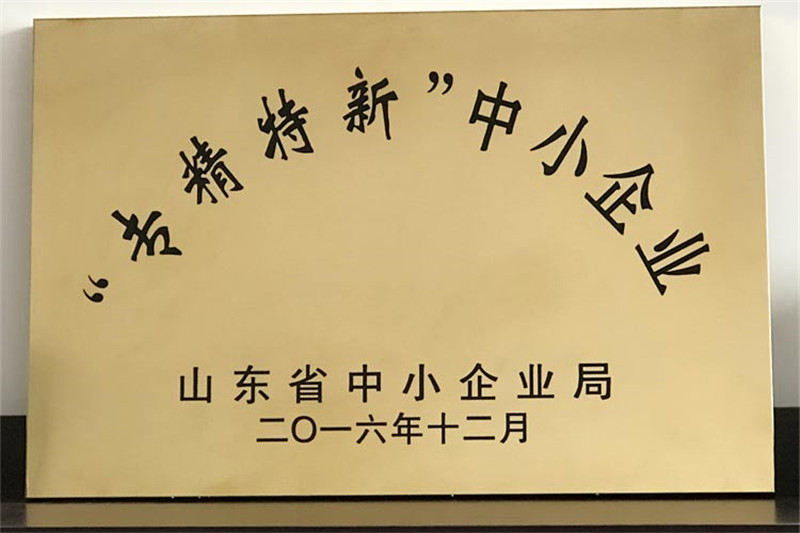 “专精特新”中小企业
山东省中小企业局
二〇一六年十二月